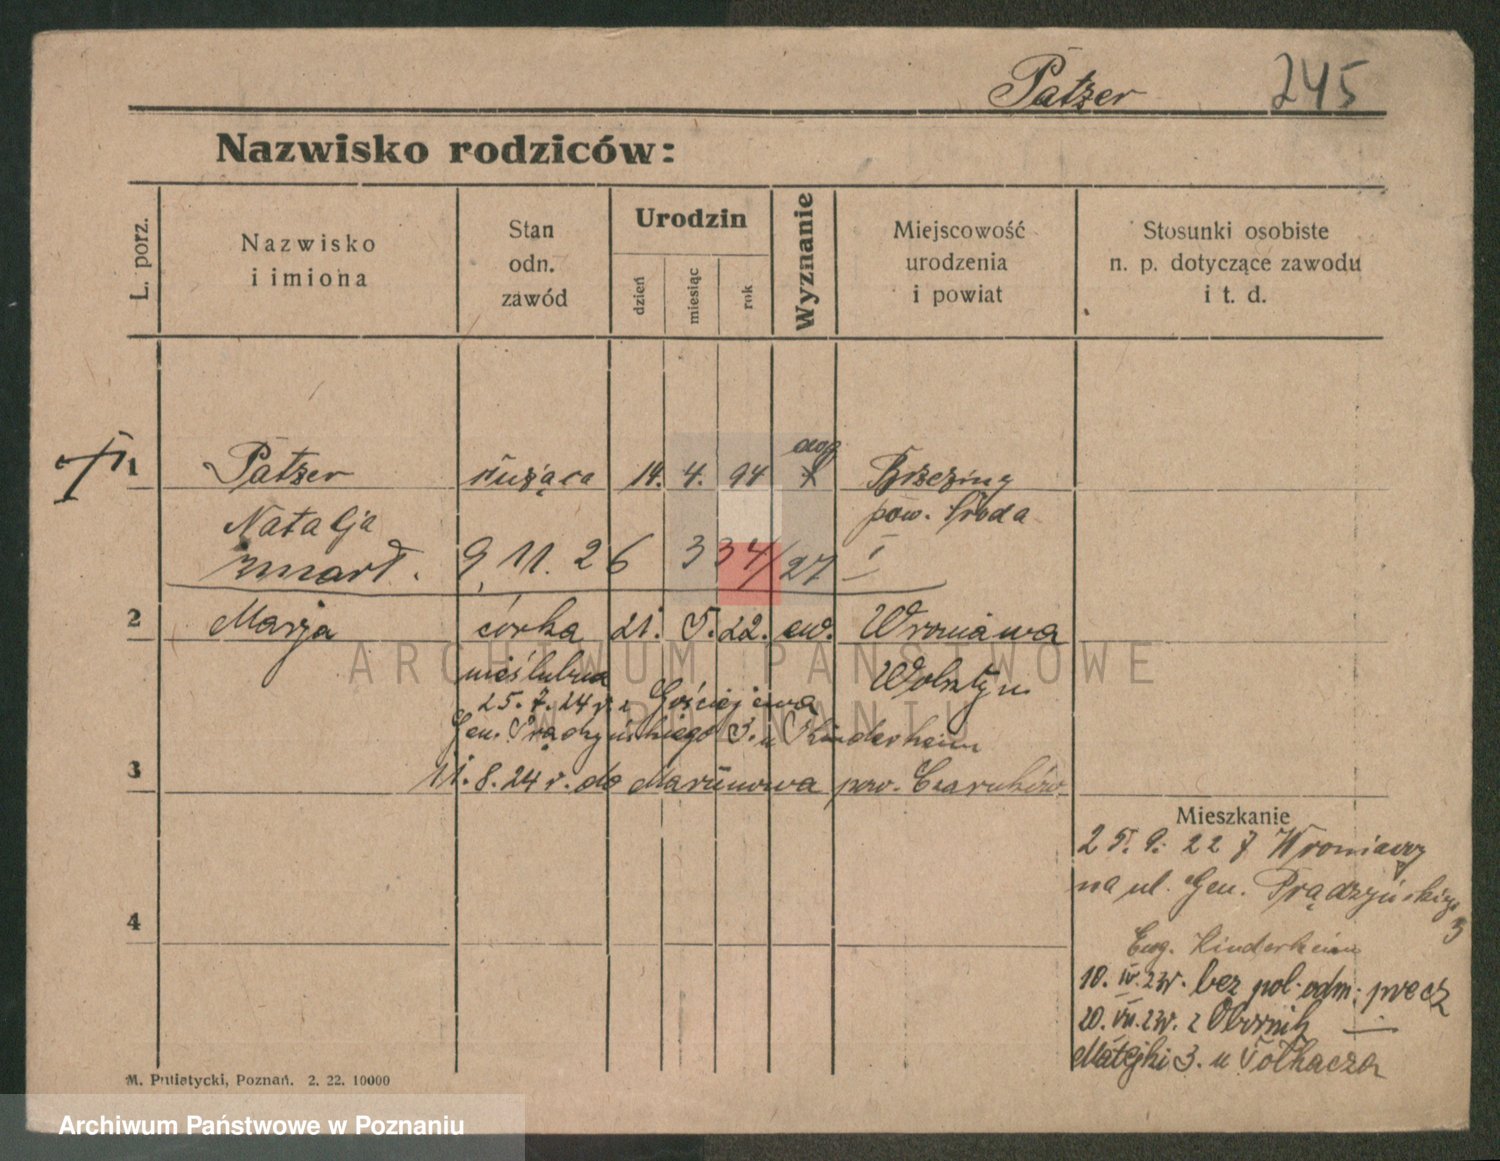 Patzer 245
Nazwisko rodziców:
L. porz.
Nazwisko
i imiona
Stan
odn.
zawód
Urodzin
dzień
miesiąc
rok
Wyznanie
Miejscowość
urodzenia
i powiat
Stosunki osobiste
n. p. dotyczące zawodu
i t. d.
ewg
1 Patzer służąca 14. 4. 94 Brzeziny
Natalja pow. Środa
zmarł. 9. 11. 26 334/27 I
2 Marja córka 21. 5. 22. ew. Wroniawa
nieślubna Wolsztyn
25. 7. 24 r. z Gościejewa
Gen. Prądzyńskiego 3. u Kinderheim
3 11. 8. 24 r. do Marunowa pow. Czarnków
Mieszkanie
25. 9. 22 z Wroniawy
na ul. Gen. Prądzyńskiego
3
4
Ewg. Kinderheim
10. IV. 23r. bez pol. odm. precz
20. VII. 23r. z Obornik
Matejki 3. u Tołkacza
M. Putiatycki, Poznań. 2. 22. 10000
ARCHIWUM PAŃSTWOWE
W POZNANIU
Archiwum Państwowe w Poznaniu